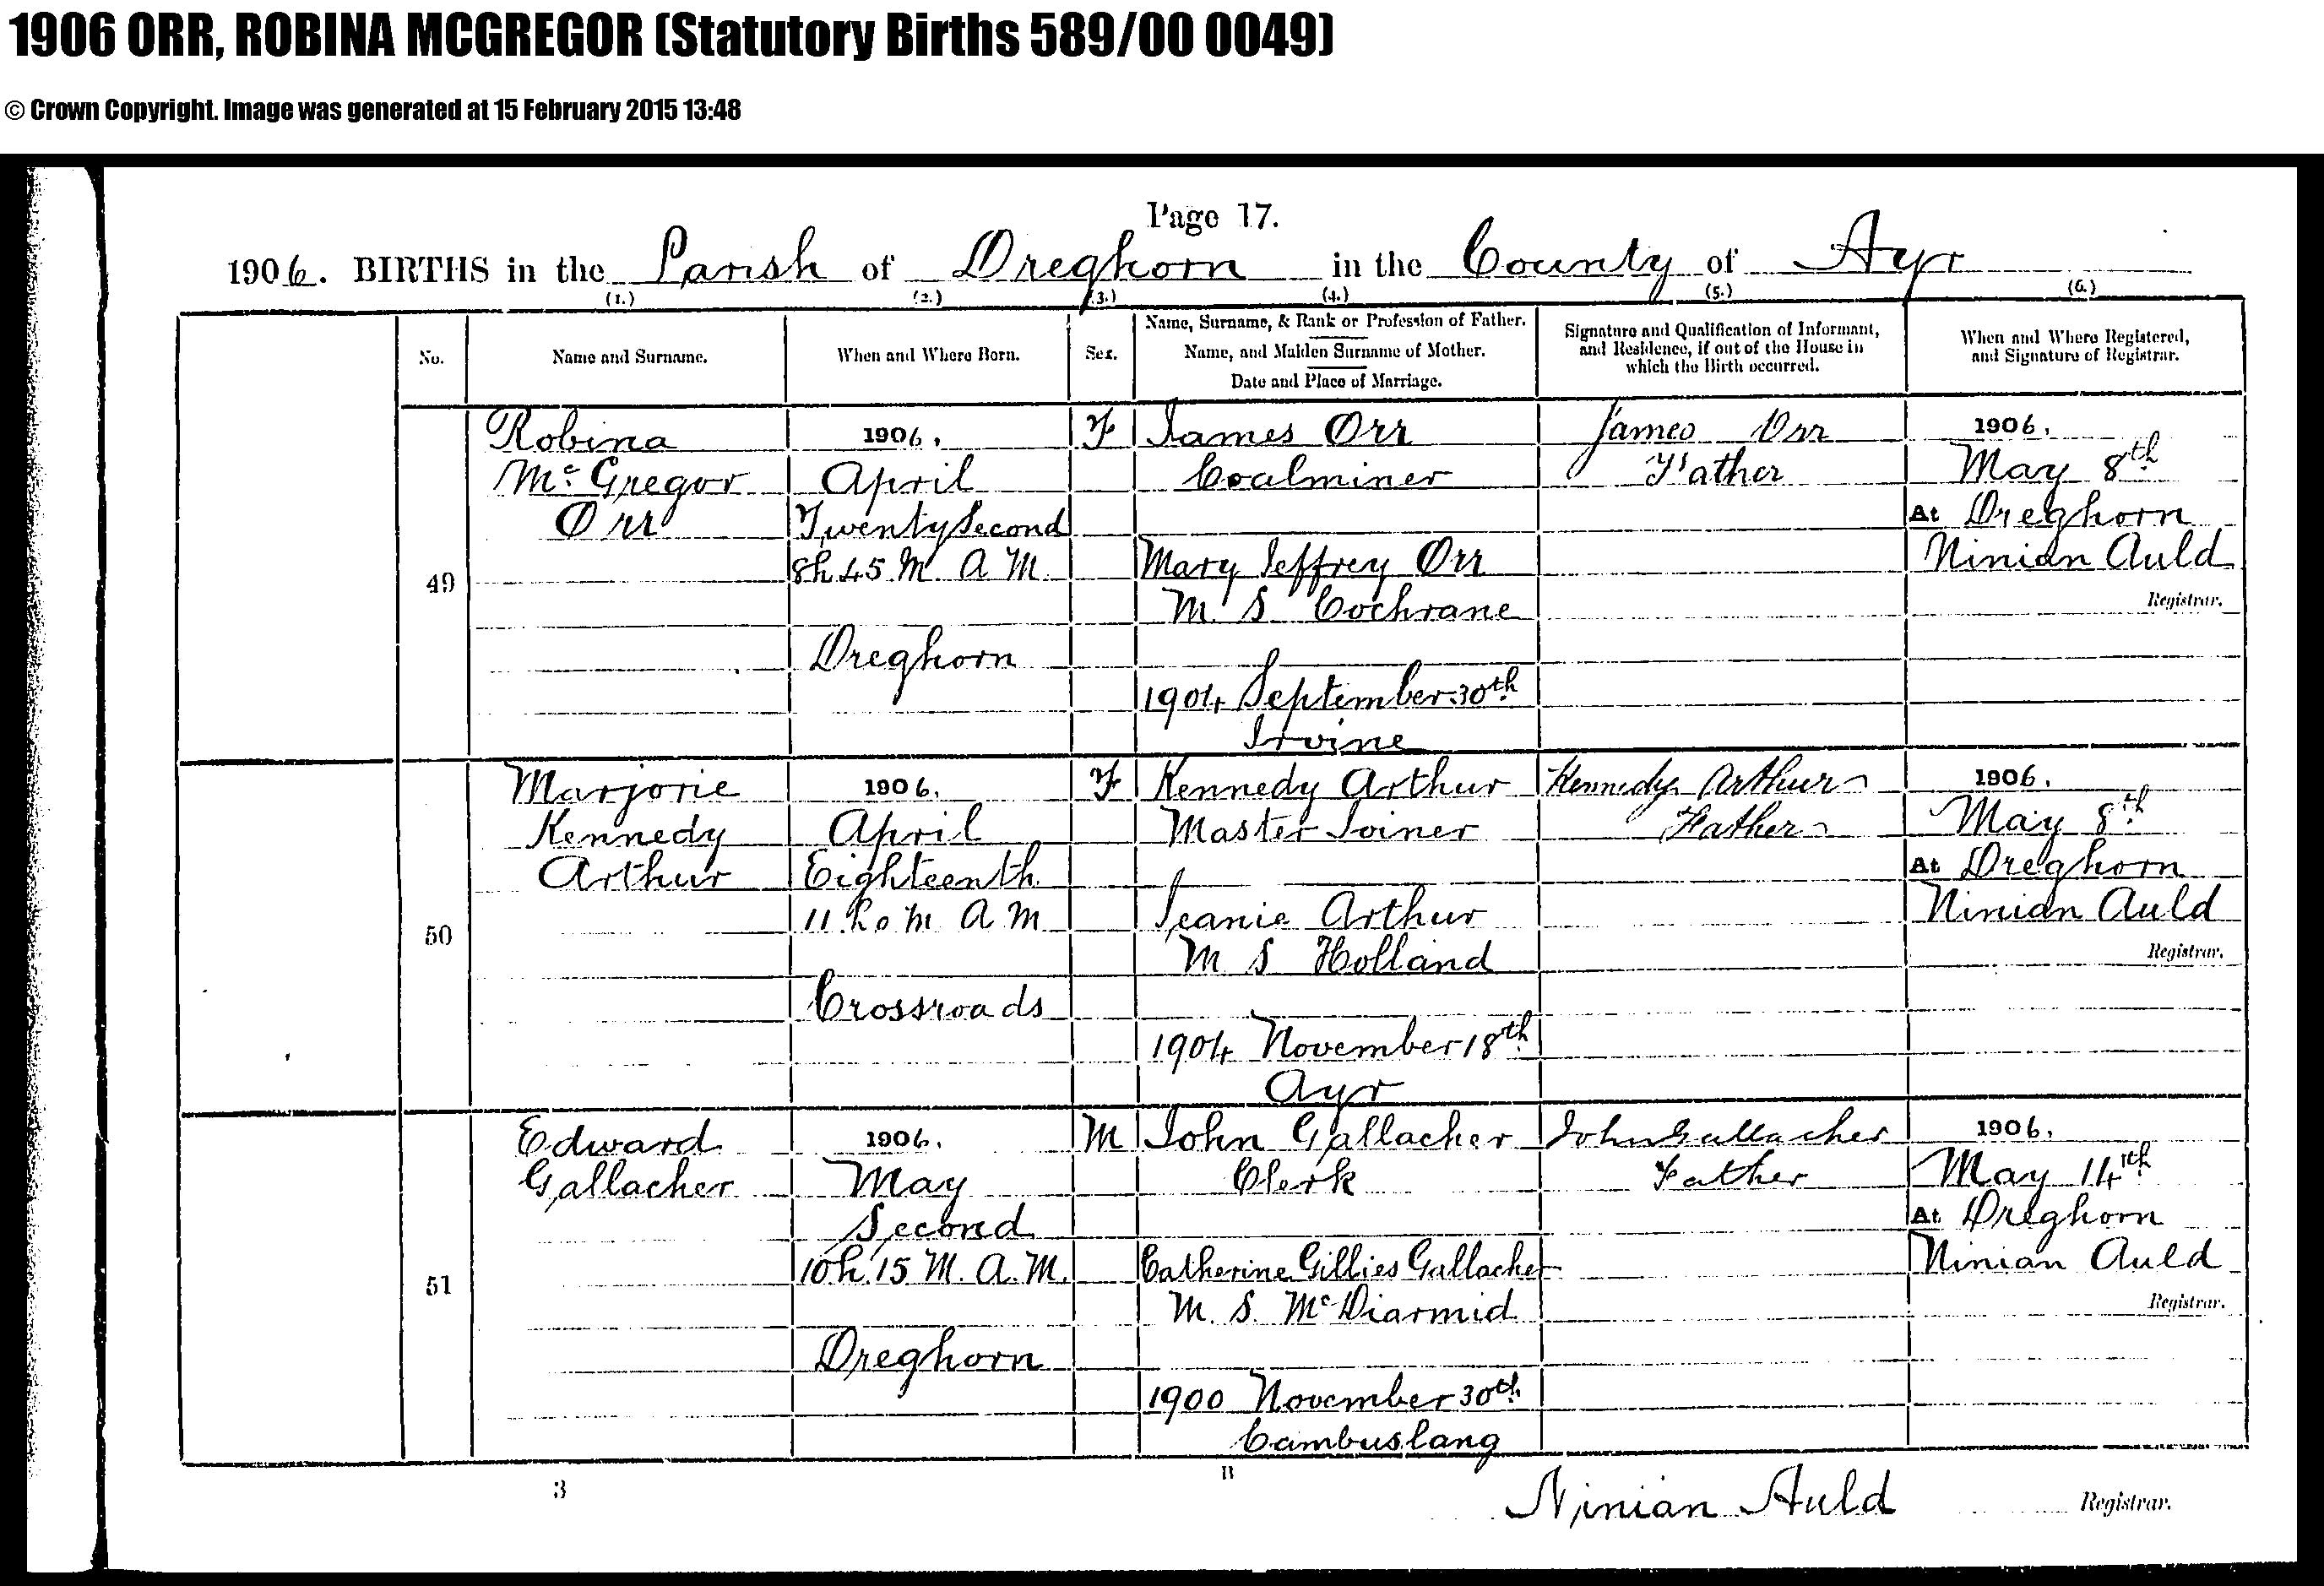 1906 ORR, ROBINA MCGREGOR (Statutory Births 589/00 0049)
© Crown Copyright. Image was generated at 15 February 2015 13:48
Page 17.
1906. BIRTHS in the Parish of Dreghorn in the County of Ayr
(1.) (2.) (3.) (4.) (5.) (6.)
No.
Name and Surname.
When and Where Born.
Sex.
Name, Surname, & Rank or Profession of Father.
Name, and Maiden Surname of Mother.
Date and Place of Marriage.
Signature and Qualification of Informant,
and Residence, if out of the House in
which the Birth occurred.
When and Where Registered,
and Signature of Registrar.
49
Robina
Mc Gregor
Orr
1906.
April
Twenty Second
8h 45 M A M
Dreghorn
F
James Orr
Coalminer
Mary Jeffrey Orr
M. S Cochrane
1904 September 30th
Irvine
James Orr
Father
1906.
May 8th
At Dreghorn
Ninian Auld
Registrar.
50
Marjorie
Kennedy
Arthur
1906.
April
Eighteenth
11 h 0 m A M
Crossroads
F
Kennedy Arthur
Master Joiner
Jeanie Arthur
M S Holland
1904 November 18th
Ayr
Kennedy Arthur
Father
1906.
May 8th
At Dreghorn
Ninian Auld
Registrar.
51
Edward
Gallacher
1906.
May
Second
10h 15 M. A. M.
Dreghorn
M
John Gallacher
Clerk
Catherine Gillies Gallacher
M. S. McDiarmid
1900 November 30th
Cambuslang
John Gallacher
Father
1906.
May 14th
At Dreghorn
Ninian Auld
Registrar.
3
B
Ninian Auld Registrar.